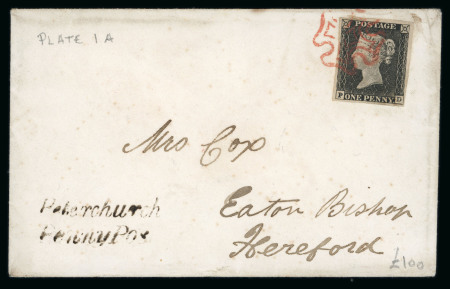 PLATE 1A
POSTAGE
P ONE PENNY D
Mrs Cox
Peterchurch
Penny Pos
Eaton Bishop
Hereford
£100